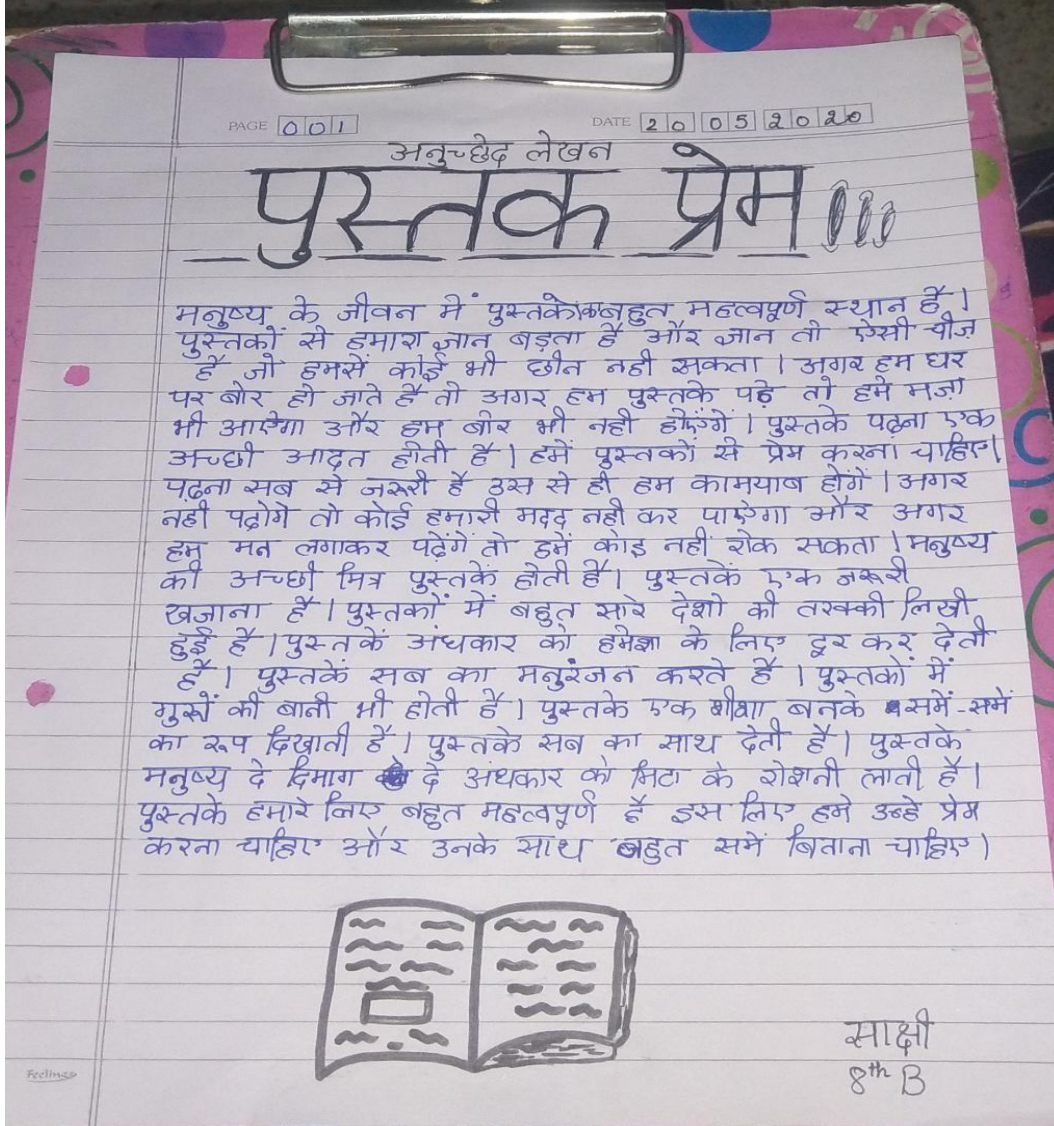 PAGE 001
DATE 20 05 2020
अनुच्छेद लेखन
पुस्तक प्रेम
मनुष्य के जीवन में पुस्तकोंका बहुत महत्वपूर्ण स्थान है।
पुस्तकों से हमारा ज्ञान बड़ता है और ज्ञान तो ऐसी चीज़
है जो हमसें कोई भी छीन नही सकता। अगर हम घर
पर बोर हो जाते है तो अगर हम पुस्तके पढ़े तो हमे मज़ा
भी आऐगा और हम बोर भी नही होएंगें। पुस्तके पढ़ना एक
अच्छी आदत होती है। हमें पुस्तकों से प्रेम करना चाहिए।
पढ़ना सब से जरूरी है उस से ही हम कामयाब होंगें। अगर
नही पढ़ोगे तो कोई हमारी मदद नही कर पाऐगा और अगर
हम मन लगाकर पढ़ेंगें तो हमें कोइ नही रोक सकता। मनुष्य
की अच्छी मित्र पुस्तकें होती है। पुस्तकें एक जरूरी
खज़ाना है। पुस्तकों में बहुत सारे देशो की तरक्की लिखी
हुई है। पुस्तकें अंधकार को हमेशा के लिए दूर कर देती
है। पुस्तकें सब का मनुरंजन करते है। पुस्तकों में
की बानी भी होती है। पुस्तके एक शीशा बनके समें-समें
का रूप दिखाती है। पुस्तके सब का साथ देती है। पुस्तके
मनुष्य दे दिमाग दे अंधकार को मिटा के रोशनी लाती है।
पुस्तके हमारे लिए बहुत महत्वपूर्ण है इस लिए हमे उन्हे प्रेम
करना चाहिए और उनके साथ बहुत समें बिताना चाहिए।
साक्षी
8th B
Feelings